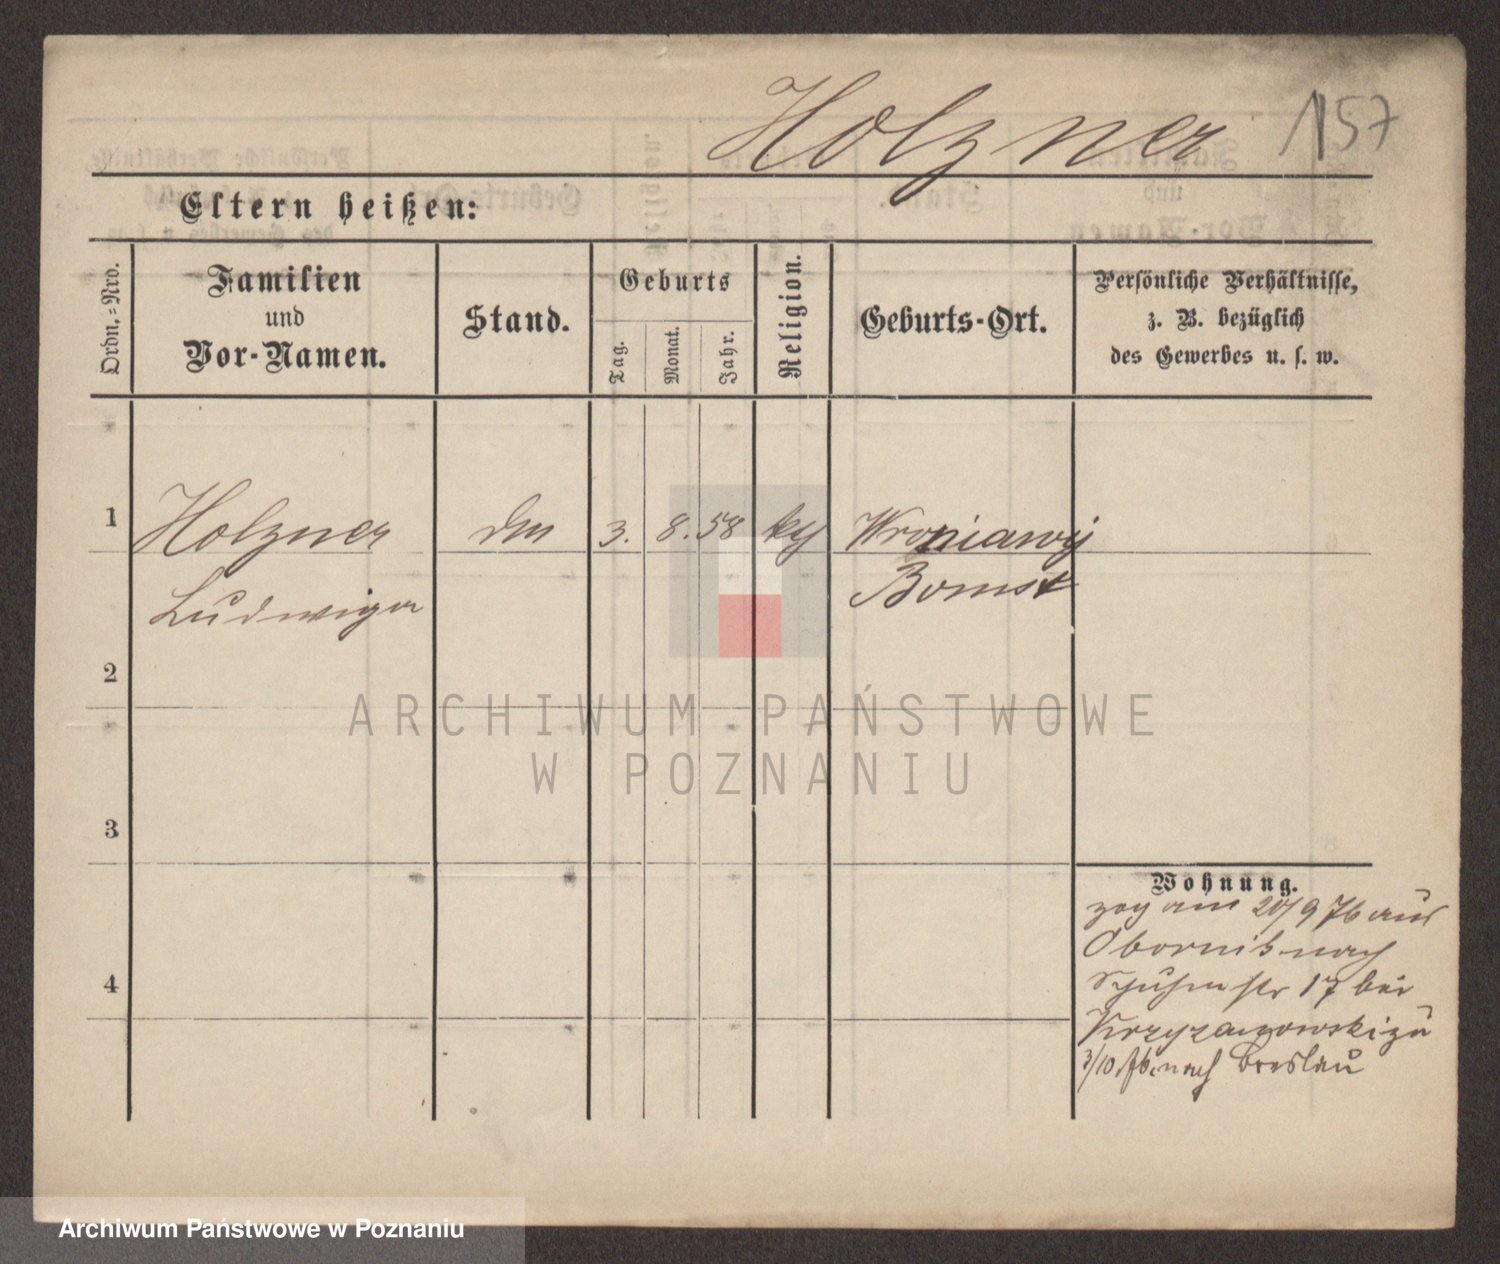 Holzner 157
Eltern heißen:
Ordn.=Nro.
Familien
und
Vor-Namen.
Stand.
Geburts
Tag.
Monat.
Jahr.
Religion.
Geburts-Ort.
Persönliche Verhältnisse,
z. B. bezüglich
des Gewerbes u. s. w.
1
Holzner
3. 8. 58
Wroniawy
Ludwiga
Bomst
2
3
4
Wohnung.
zog am 20/9 76 aus
Obornik nach
str 17 bei
Krzyzanowski zu
3/10 nach Breslau
ARCHIWUM PAŃSTWOWE
W POZNANIU
Archiwum Państwowe w Poznaniu